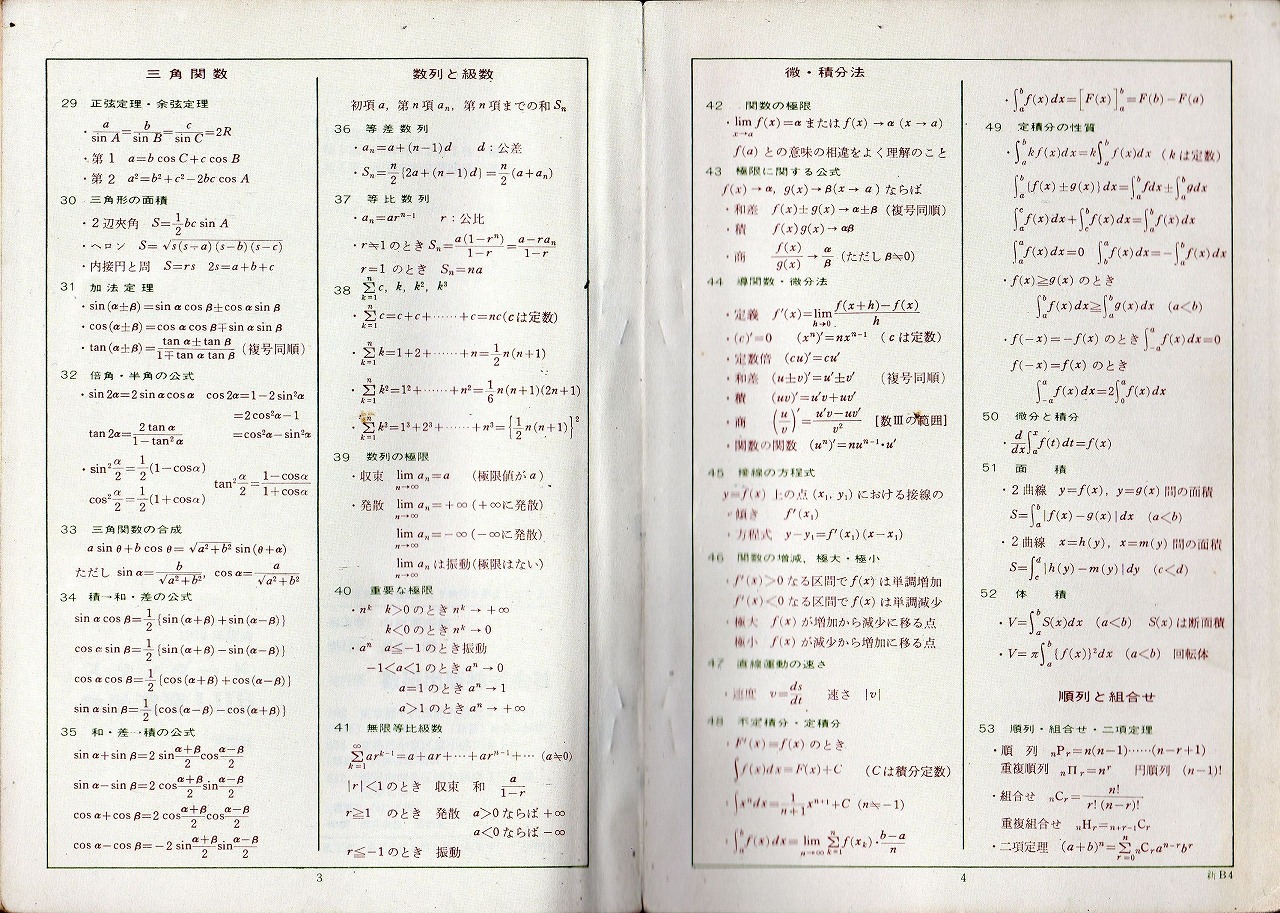 三角関数
29 正弦定理・余弦定理
・a/sin A=b/sin B=c/sin C=2R
・第1 a=b cos C+c cos B
・第2 a²=b²+c²−2bc cos A
30 三角形の面積
・2辺夾角 S=1/2 bc sin A
・ヘロン S=√s(s−a)(s−b)(s−c)
・内接円と周 S=rs 2s=a+b+c
31 加法定理
・sin(α±β)=sin α cos β±cos α sin β
・cos(α±β)=cos α cos β∓sin α sin β
・tan(α±β)=tan α±tan β/1∓tan α tan β (複号同順)
32 倍角・半角の公式
・sin 2α=2 sin α cos α cos 2α=1−2 sin²α
=2 cos²α−1
tan 2α=2 tan α/1−tan²α =cos²α−sin²α
・sin² α/2=1/2(1−cosα)
tan² α/2=1−cosα/1+cosα
cos² α/2=1/2(1+cosα)
33 三角関数の合成
a sin θ+b cos θ=√a²+b² sin(θ+α)
ただし sin α=b/√a²+b², cos α=a/√a²+b²
34 積→和・差の公式
sin α cos β=1/2{sin(α+β)+sin(α−β)}
cos α sin β=1/2{sin(α+β)−sin(α−β)}
cos α cos β=1/2{cos(α+β)+cos(α−β)}
sin α sin β=1/2{cos(α−β)−cos(α+β)}
35 和・差→積の公式
sin α+sin β=2 sin α+β/2 cos α−β/2
sin α−sin β=2 cos α+β/2 sin α−β/2
cos α+cos β=2 cos α+β/2 cos α−β/2
cos α−cos β=−2 sin α+β/2 sin α−β/2
数列と級数
初項 a, 第 n 項 aₙ, 第 n 項までの和 Sₙ
36 等差数列
・aₙ=a+(n−1)d d:公差
・Sₙ=n/2{2a+(n−1)d}=n/2(a+aₙ)
37 等比数列
・aₙ=arⁿ⁻¹ r:公比
・r≒1のとき Sₙ=a(1−rⁿ)/1−r=a−raₙ/1−r
r=1 のとき Sₙ=na
38 Σ[k=1,n] c, k, k², k³
・Σ[k=1,n] c=c+c+……+c=nc(cは定数)
・Σ[k=1,n] k=1+2+……+n=1/2 n(n+1)
・Σ[k=1,n] k²=1²+……+n²=1/6 n(n+1)(2n+1)
・Σ[k=1,n] k³=1³+2³+……+n³={1/2 n(n+1)}²
39 数列の極限
・収束 lim[n→∞] aₙ=a (極限値が a)
・発散 lim[n→∞] aₙ=+∞(+∞に発散)
lim[n→∞] aₙ=−∞(−∞に発散)
lim[n→∞] aₙ は振動(極限はない)
40 重要な極限
・nᵏ k>0 のとき nᵏ→+∞
k<0 のとき nᵏ→0
・aⁿ a≦−1 のとき振動
−1<a<1 のとき aⁿ→0
a=1 のとき aⁿ→1
a>1 のとき aⁿ→+∞
41 無限等比級数
Σ[k=1,∞] arᵏ⁻¹=a+ar+…+arⁿ⁻¹+… (a≒0)
|r|<1のとき 収束 和 a/1−r
r≧1 のとき 発散 a>0 ならば +∞
a<0 ならば −∞
r≦−1 のとき 振動
3
微・積分法
42 関数の極限
・lim[x→a] f(x)=α または f(x)→α (x→a)
f(a) との意味の相違をよく理解のこと
43 極限に関する公式
f(x)→α, g(x)→β(x→a) ならば
・和差 f(x)±g(x)→α±β (複号同順)
・積 f(x)g(x)→αβ
・商 f(x)/g(x)→α/β (ただしβ≒0)
44 導関数・微分法
・定義 f′(x)=lim[h→0] f(x+h)−f(x)/h
・(c)′=0 (xⁿ)′=nxⁿ⁻¹ (cは定数)
・定数倍 (cu)′=cu′
・和差 (u±v)′=u′±v′ (複号同順)
・積 (uv)′=u′v+uv′
・商 (u/v)′=u′v−uv′/v² [数Ⅲの範囲]
・関数の関数 (uⁿ)′=nuⁿ⁻¹・u′
45 接線の方程式
y=f(x) 上の点 (x₁, y₁) における接線の
・傾き f′(x₁)
・方程式 y−y₁=f′(x₁)(x−x₁)
46 関数の増減, 極大・極小
・f′(x)>0 なる区間で f(x) は単調増加
f′(x)<0 なる区間で f(x) は単調減少
・極大 f(x) が増加から減少に移る点
極小 f(x) が減少から増加に移る点
47 直線運動の速さ
・速度 v=ds/dt 速さ |v|
48 不定積分・定積分
・F′(x)=f(x) のとき
∫f(x)dx=F(x)+C (Cは積分定数)
・∫xⁿdx=1/n+1 xⁿ⁺¹+C (n≒−1)
・∫[a,b] f(x)dx=lim[n→∞] Σ[k=1,n] f(xₖ)・b−a/n
・∫[a,b] f(x)dx=[F(x)][a,b]=F(b)−F(a)
49 定積分の性質
・∫[a,b] kf(x)dx=k∫[a,b] f(x)dx (kは定数)
∫[a,b]{f(x)±g(x)}dx=∫[a,b] fdx±∫[a,b] gdx
∫[a,c] f(x)dx+∫[c,b] f(x)dx=∫[a,b] f(x)dx
∫[a,a] f(x)dx=0 ∫[b,a] f(x)dx=−∫[a,b] f(x)dx
・f(x)≧g(x) のとき
∫[a,b] f(x)dx≧∫[a,b] g(x)dx (a<b)
・f(−x)=−f(x) のとき ∫[−a,a] f(x)dx=0
f(−x)=f(x) のとき
∫[−a,a] f(x)dx=2∫[0,a] f(x)dx
50 微分と積分
・d/dx ∫[a,x] f(t)dt=f(x)
51 面積
・2曲線 y=f(x), y=g(x) 間の面積
S=∫[a,b]|f(x)−g(x)|dx (a<b)
・2曲線 x=h(y), x=m(y) 間の面積
S=∫[c,d]|h(y)−m(y)|dy (c<d)
52 体積
・V=∫[a,b] S(x)dx (a<b) S(x) は断面積
・V=π∫[a,b]{f(x)}²dx (a<b) 回転体
順列と組合せ
53 順列・組合せ・二項定理
・順列 ₙPᵣ=n(n−1)……(n−r+1)
重複順列 ₙΠᵣ=nʳ 円順列 (n−1)!
・組合せ ₙCᵣ=n!/r!(n−r)!
重複組合せ ₙHᵣ=ₙ₊ᵣ₋₁Cᵣ
・二項定理 (a+b)ⁿ=Σ[r=0,n] ₙCᵣaⁿ⁻ʳbʳ
4
新B4